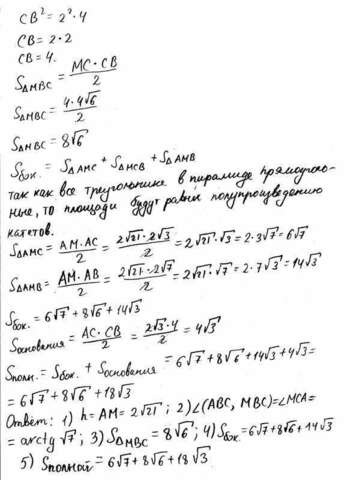 CB² = 2²·4
CB = 2·2
CB = 4.
S△MBC = MC·CB/2
S△MBC = 4·4√6/2
S△MBC = 8√6
Sбок. = S△AMC + S△MCB + S△AMB
так как все треугольнике в пирамиде прямоуголь-
ные, то площади будут равны полупроизведению
катетов.
S△AMC = AM·AC/2 = 2√21·2√3/2 = 2√21·√3 = 2·3√7 = 6√7
S△AMB = AM·AB/2 = 2√21·2√7/2 = 2√21·√7 = 2·7√3 = 14√3
Sбок. = 6√7 + 8√6 + 14√3
Sоснования = AC·CB/2 = 2√3·4/2 = 4√3
Sполн. = Sбок. + Sоснования = 6√7 + 8√6 + 14√3 + 4√3 =
= 6√7 + 8√6 + 18√3
Ответ: 1) h = AM = 2√21; 2) ∠(ABC, MBC) = ∠MCA =
= arctg √7; 3) S△MBC = 8√6; 4) Sбок. = 6√7 + 8√6 + 14√3
5) Sполной = 6√7 + 8√6 + 18√3